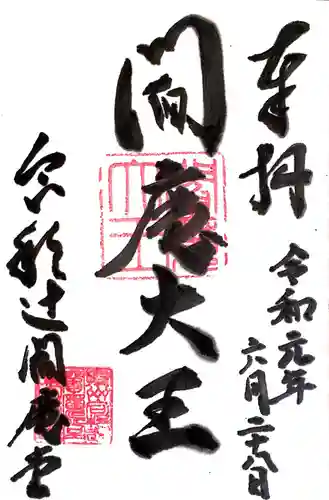 奉拝
令和元年
六月二十八日
閻魔大王
六彩辻閻魔堂